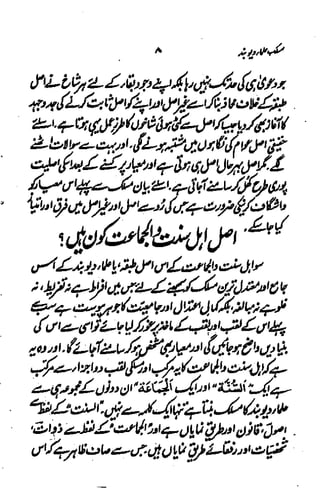 مسلک علماء دیوبند ۸
جو دعویٰ ہی کی حد تک نہیں رہا بلکہ اپنے وجود و بقاء کے لئے ہر شاخ نے اصل
طبقہ کے خلاف محاذ بنا کر اسے غیر اصل اور اپنے کو اصل ثابت کرنے کی جدوجہد
کا آغاز بھی کر دیا جیسا کہ اصل سے کٹی ہوئی شاخوں کا طرزِ عمل یہی ہوتا ہے، اس لئے
حقیقی اصل عوام کی نگاہوں میں مشتبہ ہونے لگی، اور بہت سے سوالات اٹھنے
لگے، مگر اصل بہرحال اصل ہی ہوتی ہے اور معیار پر کسنے کے بعد اس کی اصلیت
پوری طرح کھل کر سامنے آ جاتی ہے، اس لئے بیان مسلک سے پہلے اس معیار کو
واشگاف کرنیکی ضرورت ہے جس کی رو سے اصل اور غیر اصل میں فرق اور امتیاز
کیا جا سکے۔
اصل اہل سنت و الجماعت کون ہیں؟
سو اہل سنت والجماعت کے اس اصل طبقہ، یا علماء دیوبند کے اس
جامع اور معتدل ترین مسلک کو سمجھنے کے لئے جس میں افراط ہے نہ تفریط، نہ
غلو ہے نہ مبالغہ، بلکہ کمال اعتدال اور جامعیت کا جوہر پیوست ہے سب سے
پہلے اس کے لقب اور لقب کے ماخذ پر غور کر لیا جائے تو اسی سے اس کی
بنیادیں واضح ہو جائیں گی اور معیار بھی مشخص ہو کر سامنے آ جائے گا۔ اور وہ یہ
ہے کہ اہل سنت والجماعت کا یہ مرکب لقب دو اجزاء سے مرکب
ہے ایک "السُّنَّۃ" اور ایک "الجَمَاعَۃ" ان دونوں کے مجموعہ ہی سے
علماء دیوبند کا مسلک بنتا ہے تنہا ایک کلمہ سے نہیں۔ "السنت" کے لفظ سے
اصول، قانون اور طریق نمایاں ہے اور "الجماعت" کے لفظ سے ذوات،
شخصیات اور رفقائے طریق نمایاں ہیں، جس سے صاف ظاہر ہے کہ اس